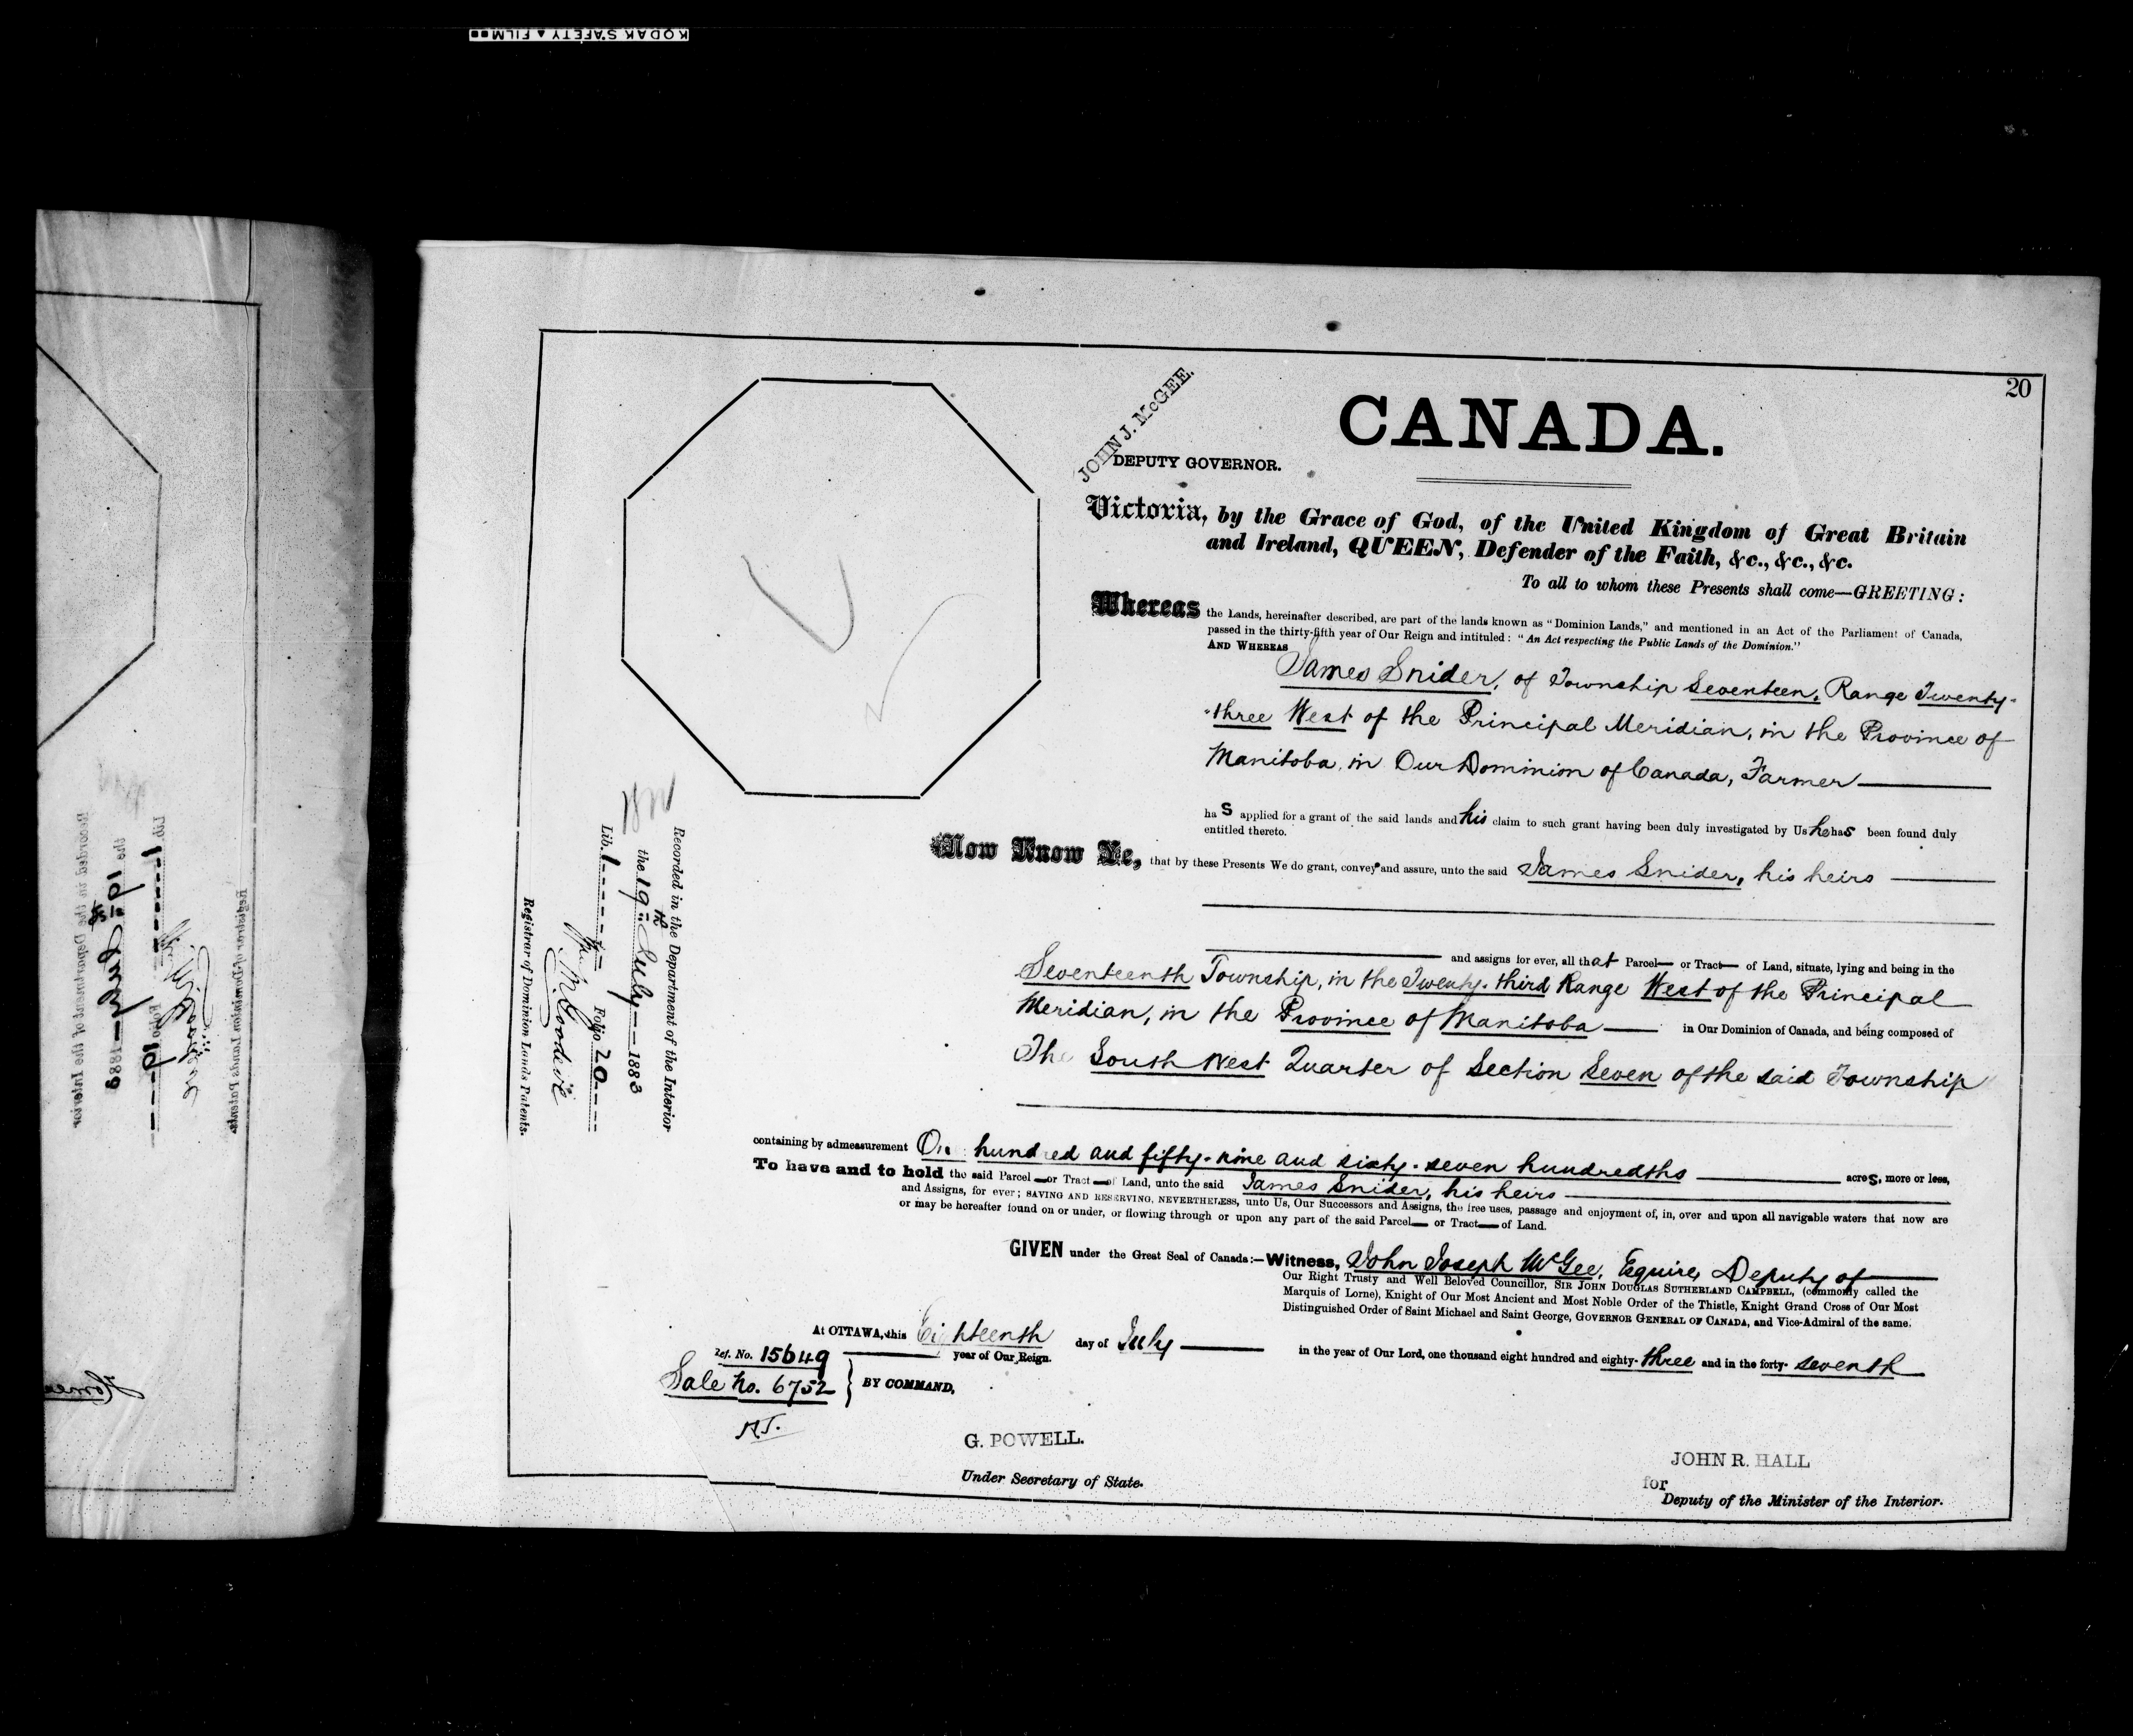 KODAK SAFETY ▲ FILM
20
CANADA.
JOHN J. McGEE.
DEPUTY GOVERNOR.
Victoria, by the Grace of God, of the United Kingdom of Great Britain
and Ireland, QUEEN, Defender of the Faith, &c., &c., &c.
To all to whom these Presents shall come—GREETING:
Whereas the Lands, hereinafter described, are part of the lands known as "Dominion Lands," and mentioned in an Act of the Parliament of Canada,
passed in the thirty-fifth year of Our Reign and intituled: "An Act respecting the Public Lands of the Dominion."
AND WHEREAS
James Snider, of Township Seventeen, Range Twenty-
-three West of the Principal Meridian, in the Province of
Manitoba, in Our Dominion of Canada, Farmer
has applied for a grant of the said lands and his claim to such grant having been duly investigated by Us he has been found duly
entitled thereto.
Now Know Ye, that by these Presents We do grant, convey and assure, unto the said James Snider, his heirs
and assigns for ever, all that Parcel— or Tract— of Land, situate, lying and being in the
Seventeenth Township, in the Twenty-third Range West of the Principal
Meridian, in the Province of Manitoba — in Our Dominion of Canada, and being composed of
The South West Quarter of Section Seven of the said Township
containing by admeasurement One hundred and fifty-nine and sixty-seven hundredths acres, more or less,
To have and to hold the said Parcel— or Tract— of Land, unto the said James Snider, his heirs
and Assigns, for ever; SAVING AND RESERVING, NEVERTHELESS, unto Us, Our Successors and Assigns, the free uses, passage and enjoyment of, in, over and upon all navigable waters that now are
or may be hereafter found on or under, or flowing through or upon any part of the said Parcel— or Tract— of Land.
GIVEN under the Great Seal of Canada:—Witness, John Joseph McGee, Esquire, Deputy of
Our Right Trusty and Well Beloved Councillor, SIR JOHN DOUGLAS SUTHERLAND CAMPBELL, (commonly called the
Marquis of Lorne), Knight of Our Most Ancient and Most Noble Order of the Thistle, Knight Grand Cross of Our Most
Distinguished Order of Saint Michael and Saint George, GOVERNOR GENERAL OF CANADA, and Vice-Admiral of the same.
At OTTAWA, this Eighteenth day of July — in the year of Our Lord, one thousand eight hundred and eighty-three and in the forty-seventh
year of Our Reign.
Ref. No. 15649
Sale No. 6752
BY COMMAND,
G. POWELL.
Under Secretary of State.
JOHN R. HALL
for
Deputy of the Minister of the Interior.
Recorded in the Department of the Interior
the 19th July — 1883
Lib. 1 Folio 20
Registrar of Dominion Lands Patents.
Recorded in the Department of the Interior
the 19th July — 1883
Lib. 1 Folio 19
Registrar of Dominion Lands Patents.